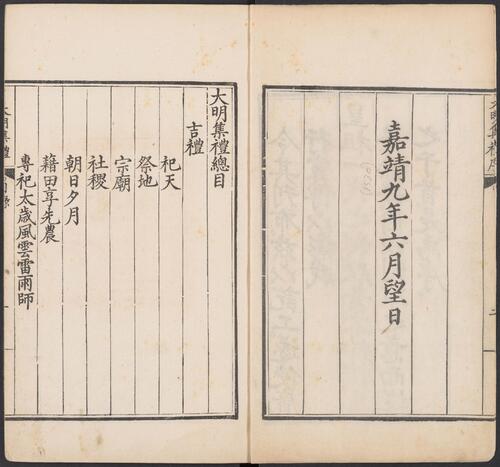 嘉靖九年六月望日
(1530)
大明集禮總目
吉禮
祀天
祭地
宗廟
社稷
朝日夕月
藉田享先農
專祀太歲風雲雷雨師
大明集禮